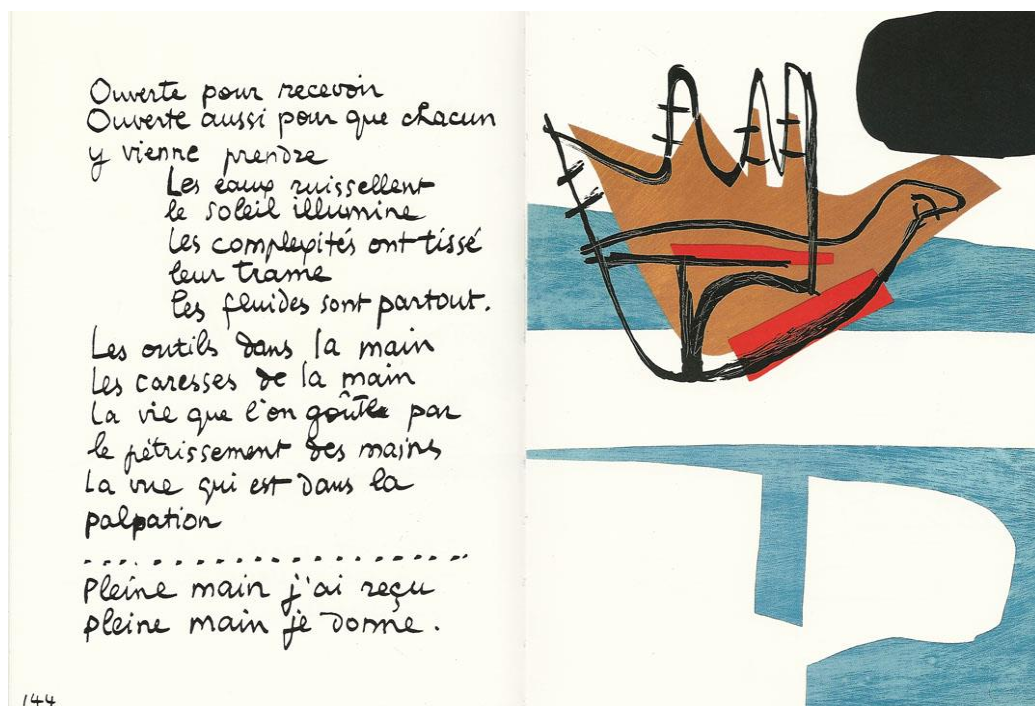 Ouverte pour recevoir
Ouverte aussi pour que chacun
y vienne prendre
Les eaux ruissellent
le soleil illumine
les complexités ont tissé
leur trame
les fluides sont partout.
Les outils dans la main
Les caresses de la main
La vie que l'on goûte par
le pétrissement des mains
La vue qui est dans la
palpation
....................
Pleine main j'ai reçu
pleine main je donne.
144